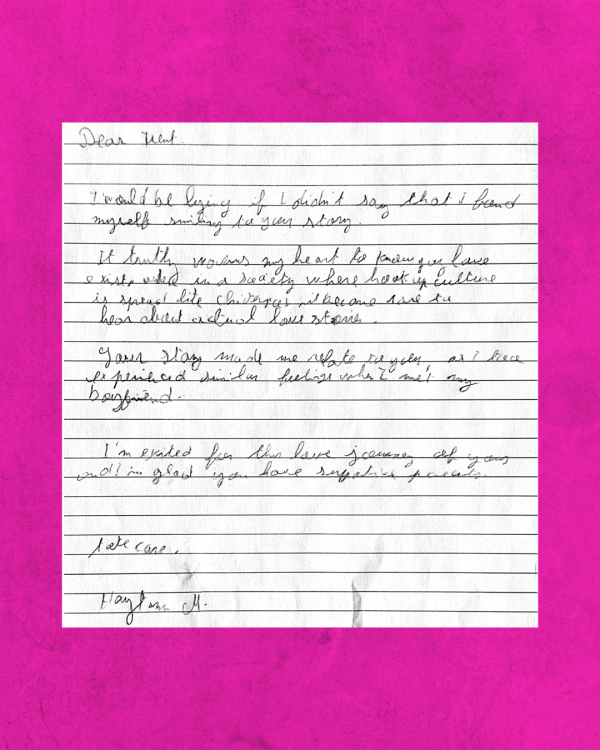 Dear
I would be lying if I didn't say that i found
myself smiling to your story.
It truthly worms my heart to know you have
in a society where hookup culture
is spread like it became rare to
hear about actual love stories.
Your story made me relate to you as i have
experienced similar feelings when I met my
boyfriend.
I'm exited for this love journey of yours
and I'm glad you have supportive parents.
take care.
M.